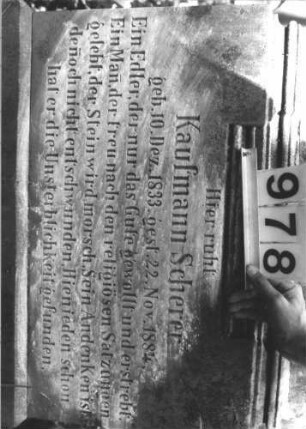 Hier ruht
Kaufmann Scherer
geb. 10. Dez. 1833. gest. 22. Nov. 1884.
Ein Edler, der nur das Gute gewollt und erstrebt
Ein Man, der treu nach den religiösen Satzungen
gelebt, der Stein wird morsch, Sein Andenken ist
denoch nicht entschwunden. Hienieden schon
hat er die Unsterblichkeit gefunden.
978